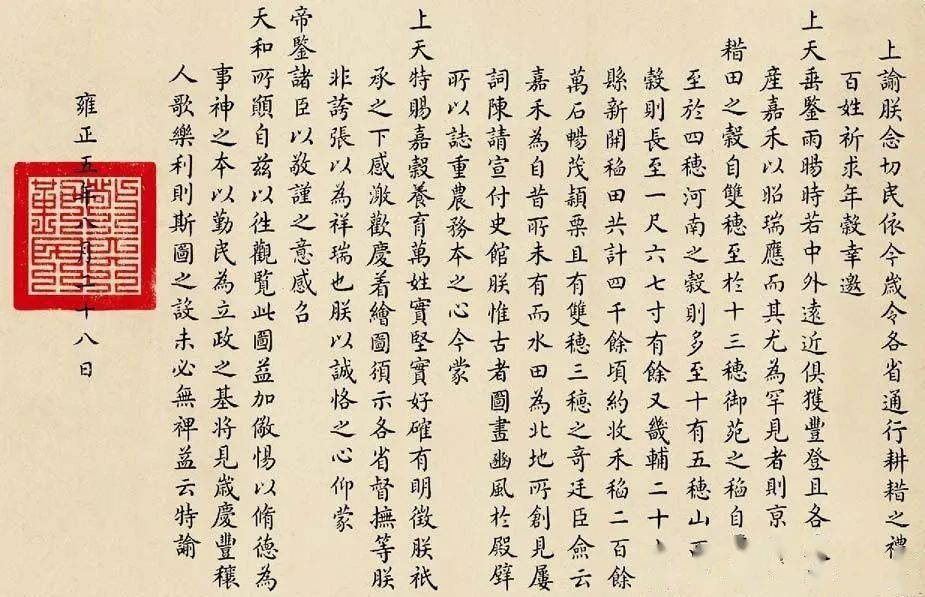 上諭朕念切民依今歲令各省通行耕耤之禮
百姓祈求年穀幸邀
上天垂鑒雨暘時若中外遠近俱獲豐登且各
產嘉禾以昭瑞應而其尤為罕見者則京
耤田之穀自雙穗至於十三穗御苑之稻自
至於四穗河南之穀則多至十有五穗山
穀則長至一尺六七寸有餘又畿輔二十
縣新開稻田共計四千餘頃約收禾稻二百餘
萬石暢茂穎栗且有雙穗三穗之奇廷臣僉云
嘉禾為自昔所未有而水田為北地所創見屢
詞陳請宣付史館朕惟古者圖畫豳風於殿壁
所以誌重農務本之心今蒙
上天特賜嘉穀養育萬姓實堅實好確有明徵朕祇
承之下感激歡慶着繪圖頒示各省督撫等朕
非誇張以為祥瑞也朕以誠恪之心仰蒙
帝鑒諸臣以敬謹之意感召
天和所顯自兹以往觀覽此圖益加儆惕以脩德為
事神之本以勤民為立政之基將見歲慶豐穰
人歌樂利則斯圖之設未必無裨益云特諭
雍正五年八月二十八日